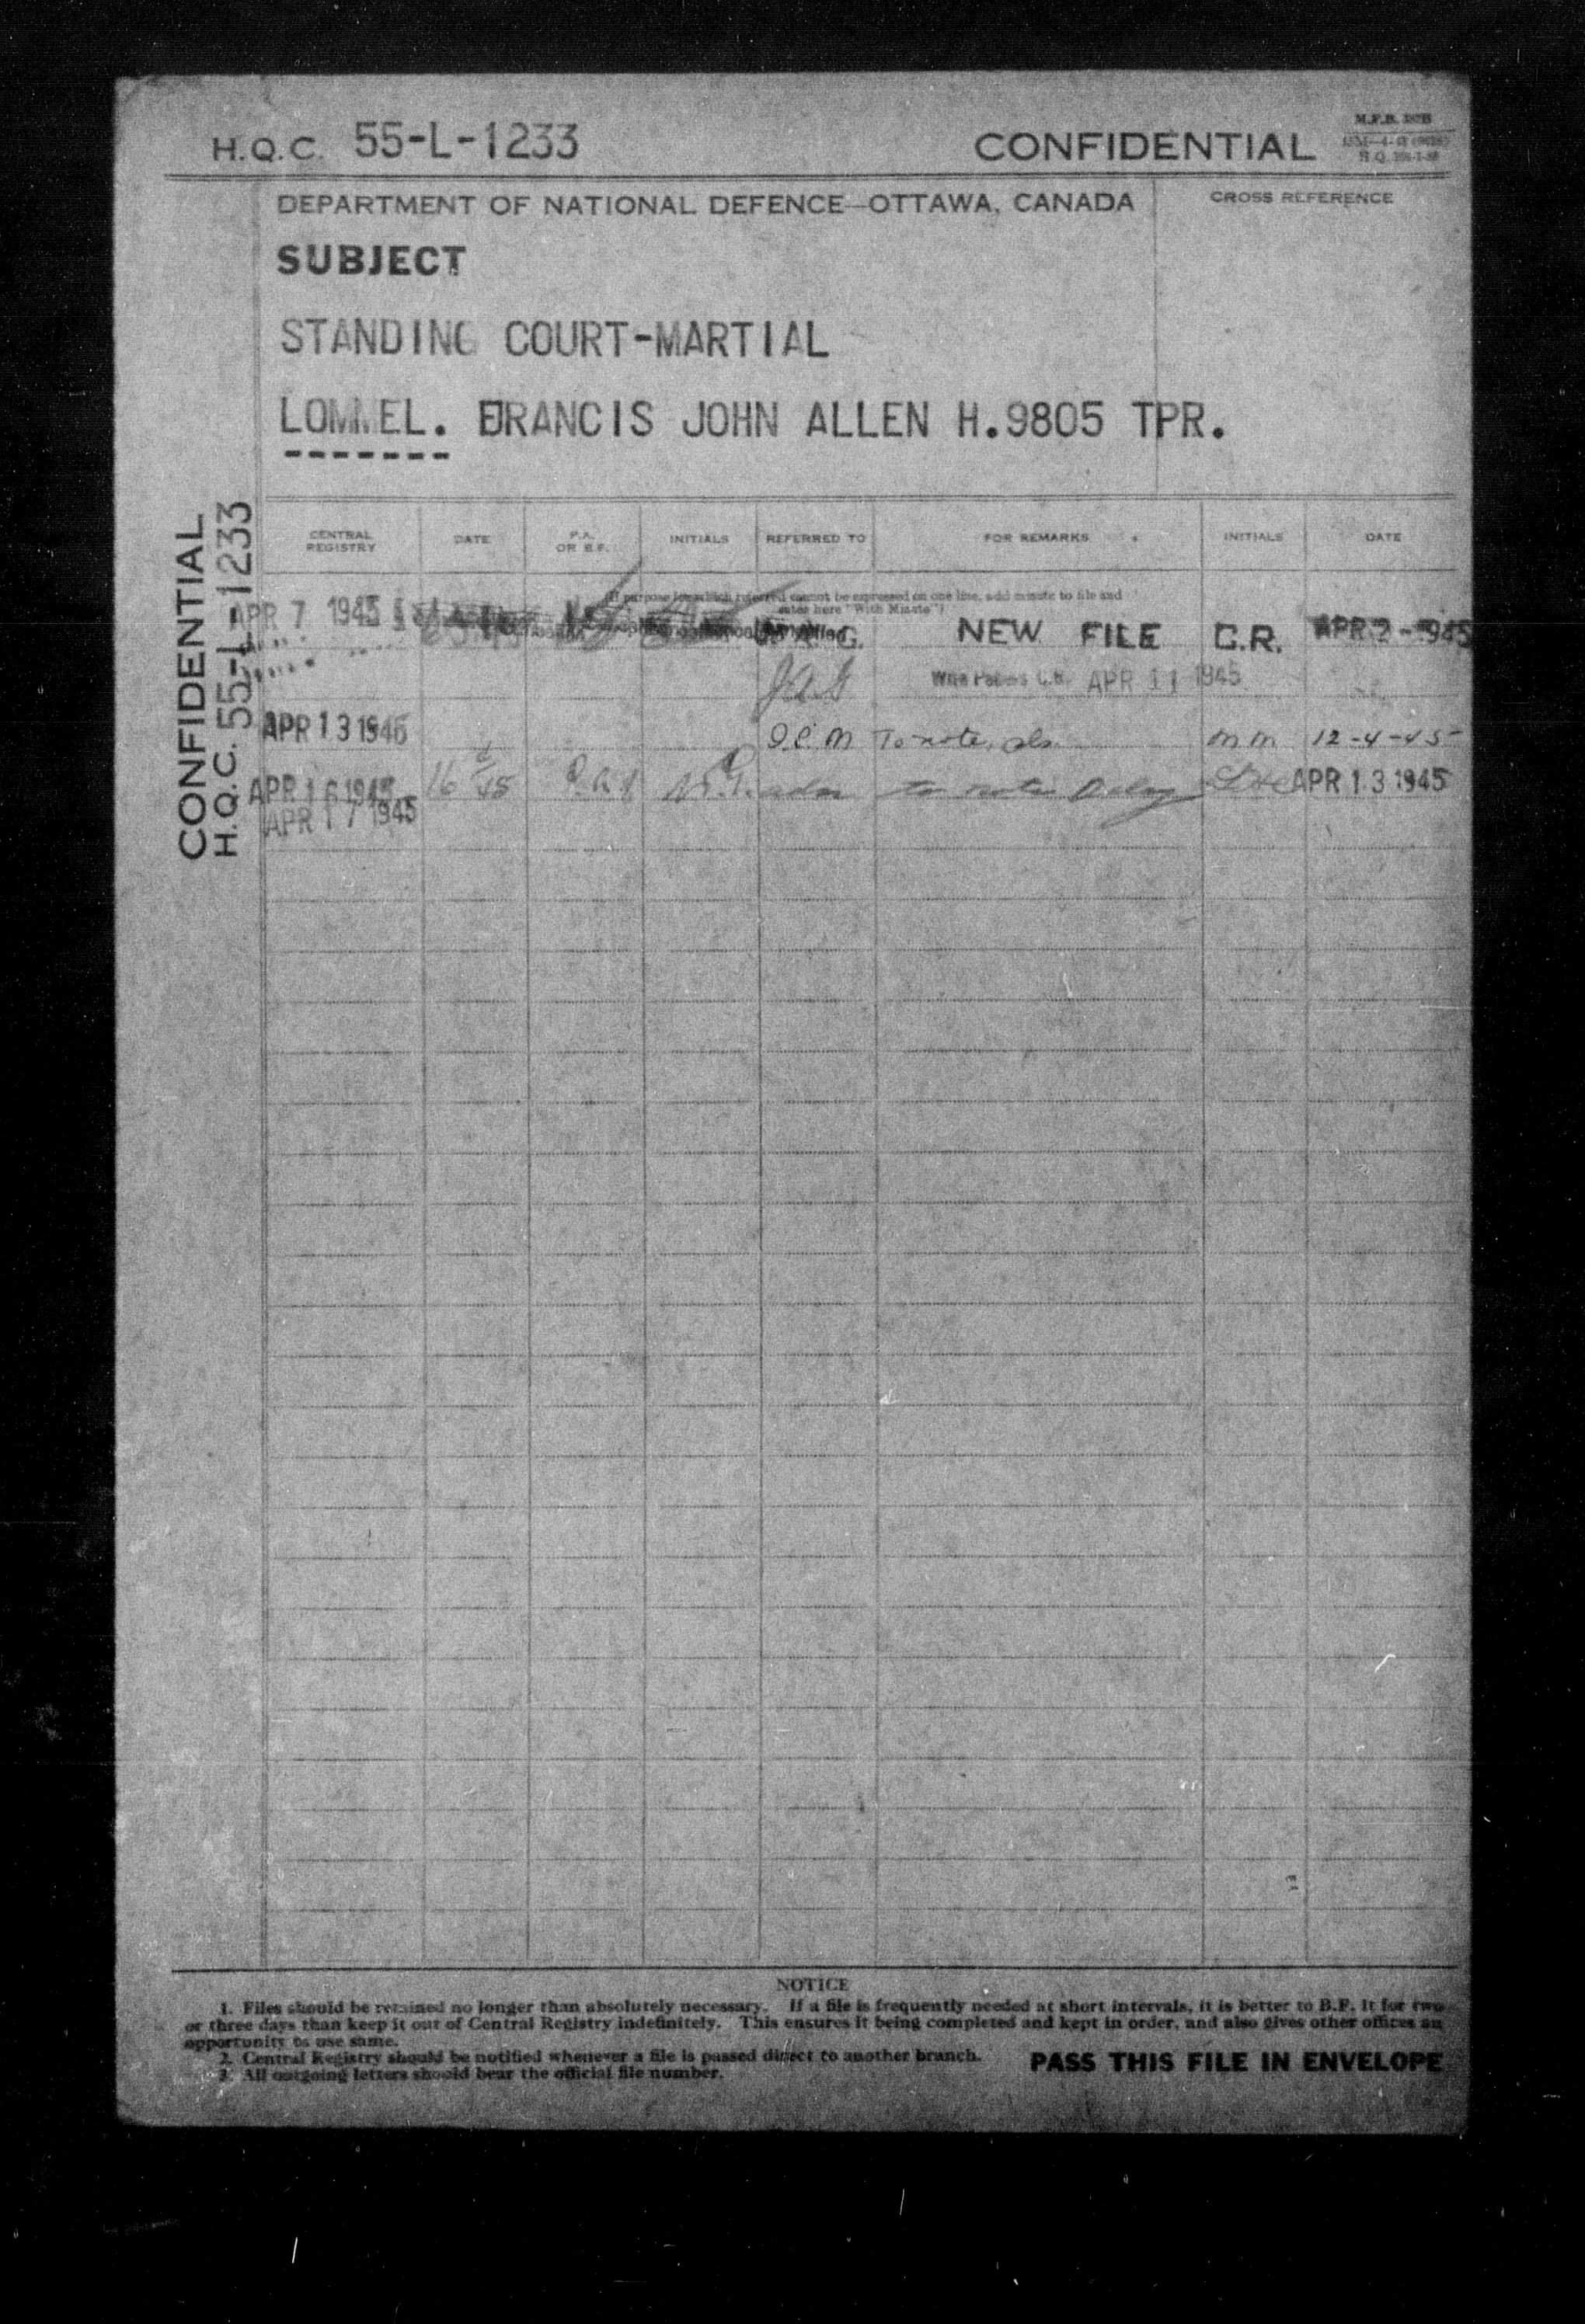 H.Q.C. 55-L-1233 CONFIDENTIAL M.F.B.
H.Q.
DEPARTMENT OF NATIONAL DEFENCE—OTTAWA, CANADA CROSS REFERENCE
SUBJECT
STANDING COURT-MARTIAL
LOMMEL. FRANCIS JOHN ALLEN H.9805 TPR.
-------
CONFIDENTIAL
H.Q.C. 55-L-1233
CENTRAL REGISTRY DATE P.A. OR B.F. INITIALS REFERRED TO FOR REMARKS INITIALS DATE
(If purpose for which referred cannot be expressed on one line, add minute to file and
enter here "With Minute")
APR 7 1945 J.A.G. NEW FILE C.R. APR 2-1945
JAG With Papers C.R. APR 11 1945
APR 13 1945 To note, pls. MM 12-4-45
APR 16 1945 16/4/45 P.A. to note APR 13 1945
APR 17 1945
NOTICE
1. Files should be retained no longer than absolutely necessary. If a file is frequently needed at short intervals, it is better to B.F. it for two
or three days than keep it out of Central Registry indefinitely. This ensures it being completed and kept in order, and also gives other offices an
opportunity to use same.
2. Central Registry should be notified whenever a file is passed direct to another branch.
3. All outgoing letters should bear the official file number.
PASS THIS FILE IN ENVELOPE